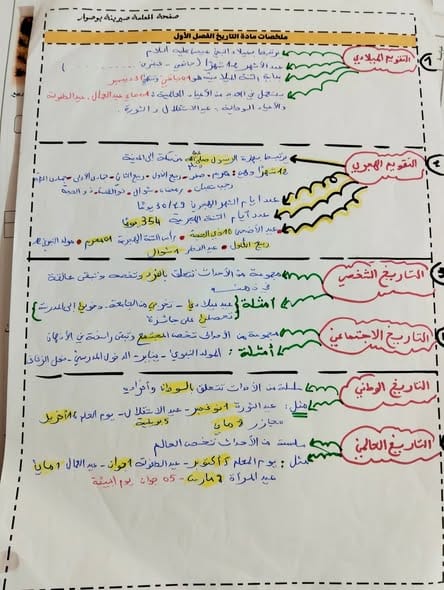 صفحة المعلمة صبرينة بوصوار
ملخصات مادة التاريخ الفصل الأول
1 التقويم الميلادي
يرتبط بميلاد النبي عيسى عليه السلام
عدد الأشهر 12 شهرا (جانفي - فيفري )
بداية السنة الميلادية هو 01 جانفي
نستعمل في العديد من الأعياد العالمية: كعيد العمال، عيد الطفولة
والأعياد الوطنية: عيد الاستقلال والثورة.
2 التقويم الهجري
يرتبط بهجرة الرسول من مكة إلى المدينة
12 شهرا وهي: محرم - صفر - ربيع الأول - ربيع الثاني - جمادى الأولى - جمادى
رجب - شعبان - رمضان - شوال - ذو القعدة - ذو الحجة
عدد أيام الشهر الهجري 29 / 30 يوما
عدد أيام السنة الهجرية 354 يوما
عيد الأضحى 10 ذي الحجة • رأس السنة الهجرية 01 محرم • مولد النبوي
ربيع الأول • عيد الفطر 1 شوال
3 التاريخ الشخصي
مجموعة من الأحداث تتعلق بالفرد وتخصه وتبقى عالقة
في ذهنه
أمثلة: عيد ميلادي - تخرجي من الجامعة. دخولي إلى المدرسة
تحصلي على جائزة
التاريخ الاجتماعي
مجموعة من الأحداث تخص المجتمع وتبقى راسخة في الأذهان
أمثلة: المولد النبوي - يناير - الدخول المدرسي - حفل الزفاف
التاريخ الوطني
سلسلة من الأحداث تتعلق بالوطن وأفراده
مثل: عيد الثورة 1 نوفمبر - عيد الاستقلال 5 جويلية - يوم العلم 16 أفريل
مجازر 8 ماي
التاريخ العالمي
سلسلة من الأحداث تخص العالم
مثل: يوم المعلم 5 أكتوبر - عيد الطفولة 1 جوان - عيد العمال 1 ماي
عيد المرأة 8 مارس - 05 جوان يوم البيئة